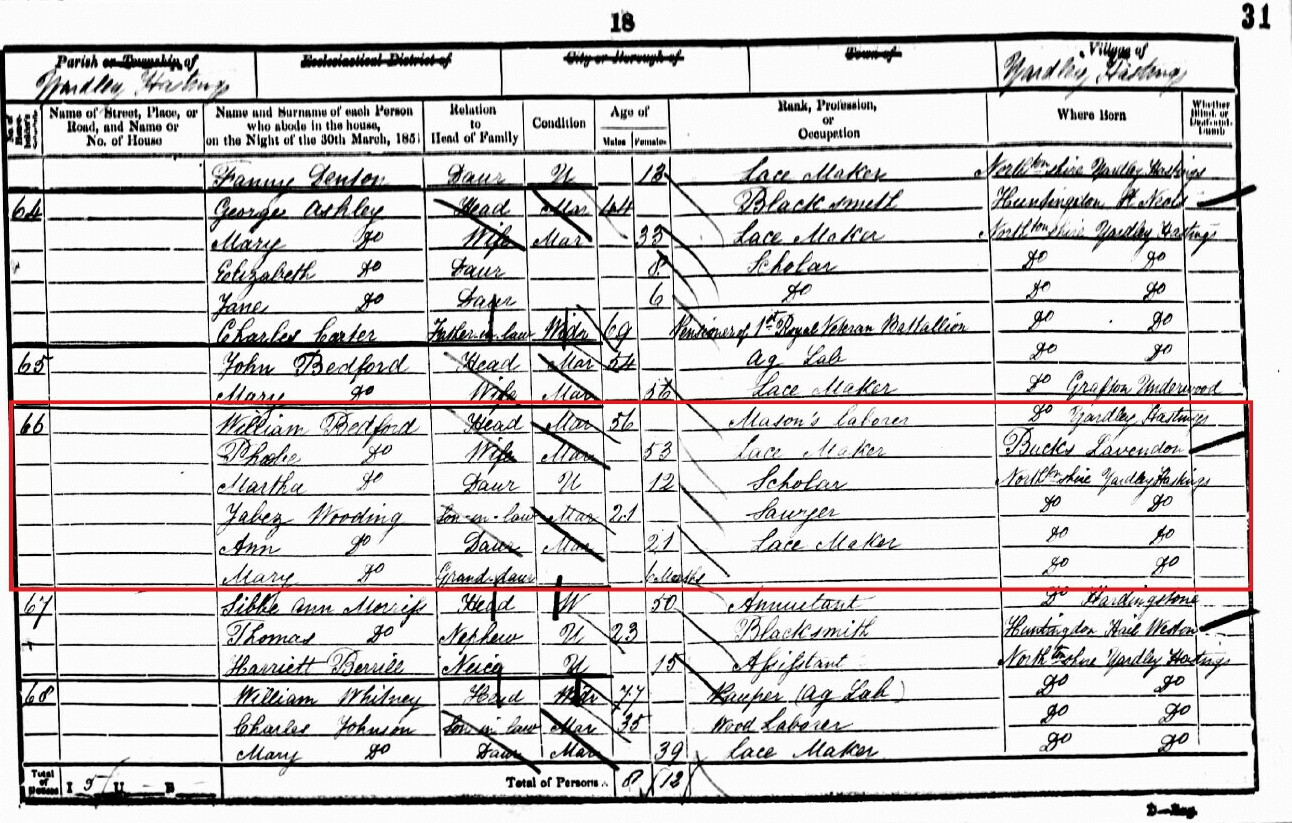 18
31
Parish or Township of Ecclesiastical District of City or Borough of Town of Village of
Yardley Hastings Yardley Hastings
Name of Street, Place, or Road, and Name or No. of House Name and Surname of each Person who abode in the house, on the Night of the 30th March, 1851 Relation to Head of Family Condition Age of Males Females Rank, Profession, or Occupation Where Born Whether Blind, or Deaf-and-Dumb
Fanny Denton Daur U 13 Lace Maker Northtonshire Yardley Hastings
64 George Ashley Head Mar 44 Black smith Huntingdon St Neots
Mary Do Wife Mar 33 Lace Maker Northtonshire Yardley Hastings
Elizabeth Do Daur 8 Scholar Do Do
Jane Do Daur 6 Do Do Do
Charles Carter Father-in-law Widr 69 Pensioner of 1st Royal Veteran Battallion Do Do
65 John Bedford Head Mar 54 Ag Lab Do Do
Mary Do Wife Mar 56 Lace Maker Do Grafton Underwood
66 William Bedford Head Mar 56 Mason's laborer Do Yardley Hastings
Phebe Do Wife Mar 53 Lace Maker Bucks Lavendon
Martha Do Daur U 12 Scholar Northtonshire Yardley Hastings
Jabez Wooding Son-in-law Mar 21 Sawyer Do Do
Ann Do Daur Mar 21 Lace Maker Do Do
Mary Do Grand-daur 6 Months Do Do
67 Ann Morriss Head W 50 Annuitant Do Hardingstone
Thomas Do Nephew U 23 Blacksmith Huntingdon Hail Weston
Harriett Berrill Neice U 15 Assistant Northtonshire Yardley Hastings
68 William Whitney Head Widr 77 Pauper (Ag Lab) Do Do
Charles Johnson Son in law Mar 35 Wood Laborer Do Do
Mary Do Daur Mar 39 Lace Maker Do Do
Total of Houses I 5 U B Total of Persons.. 8 12